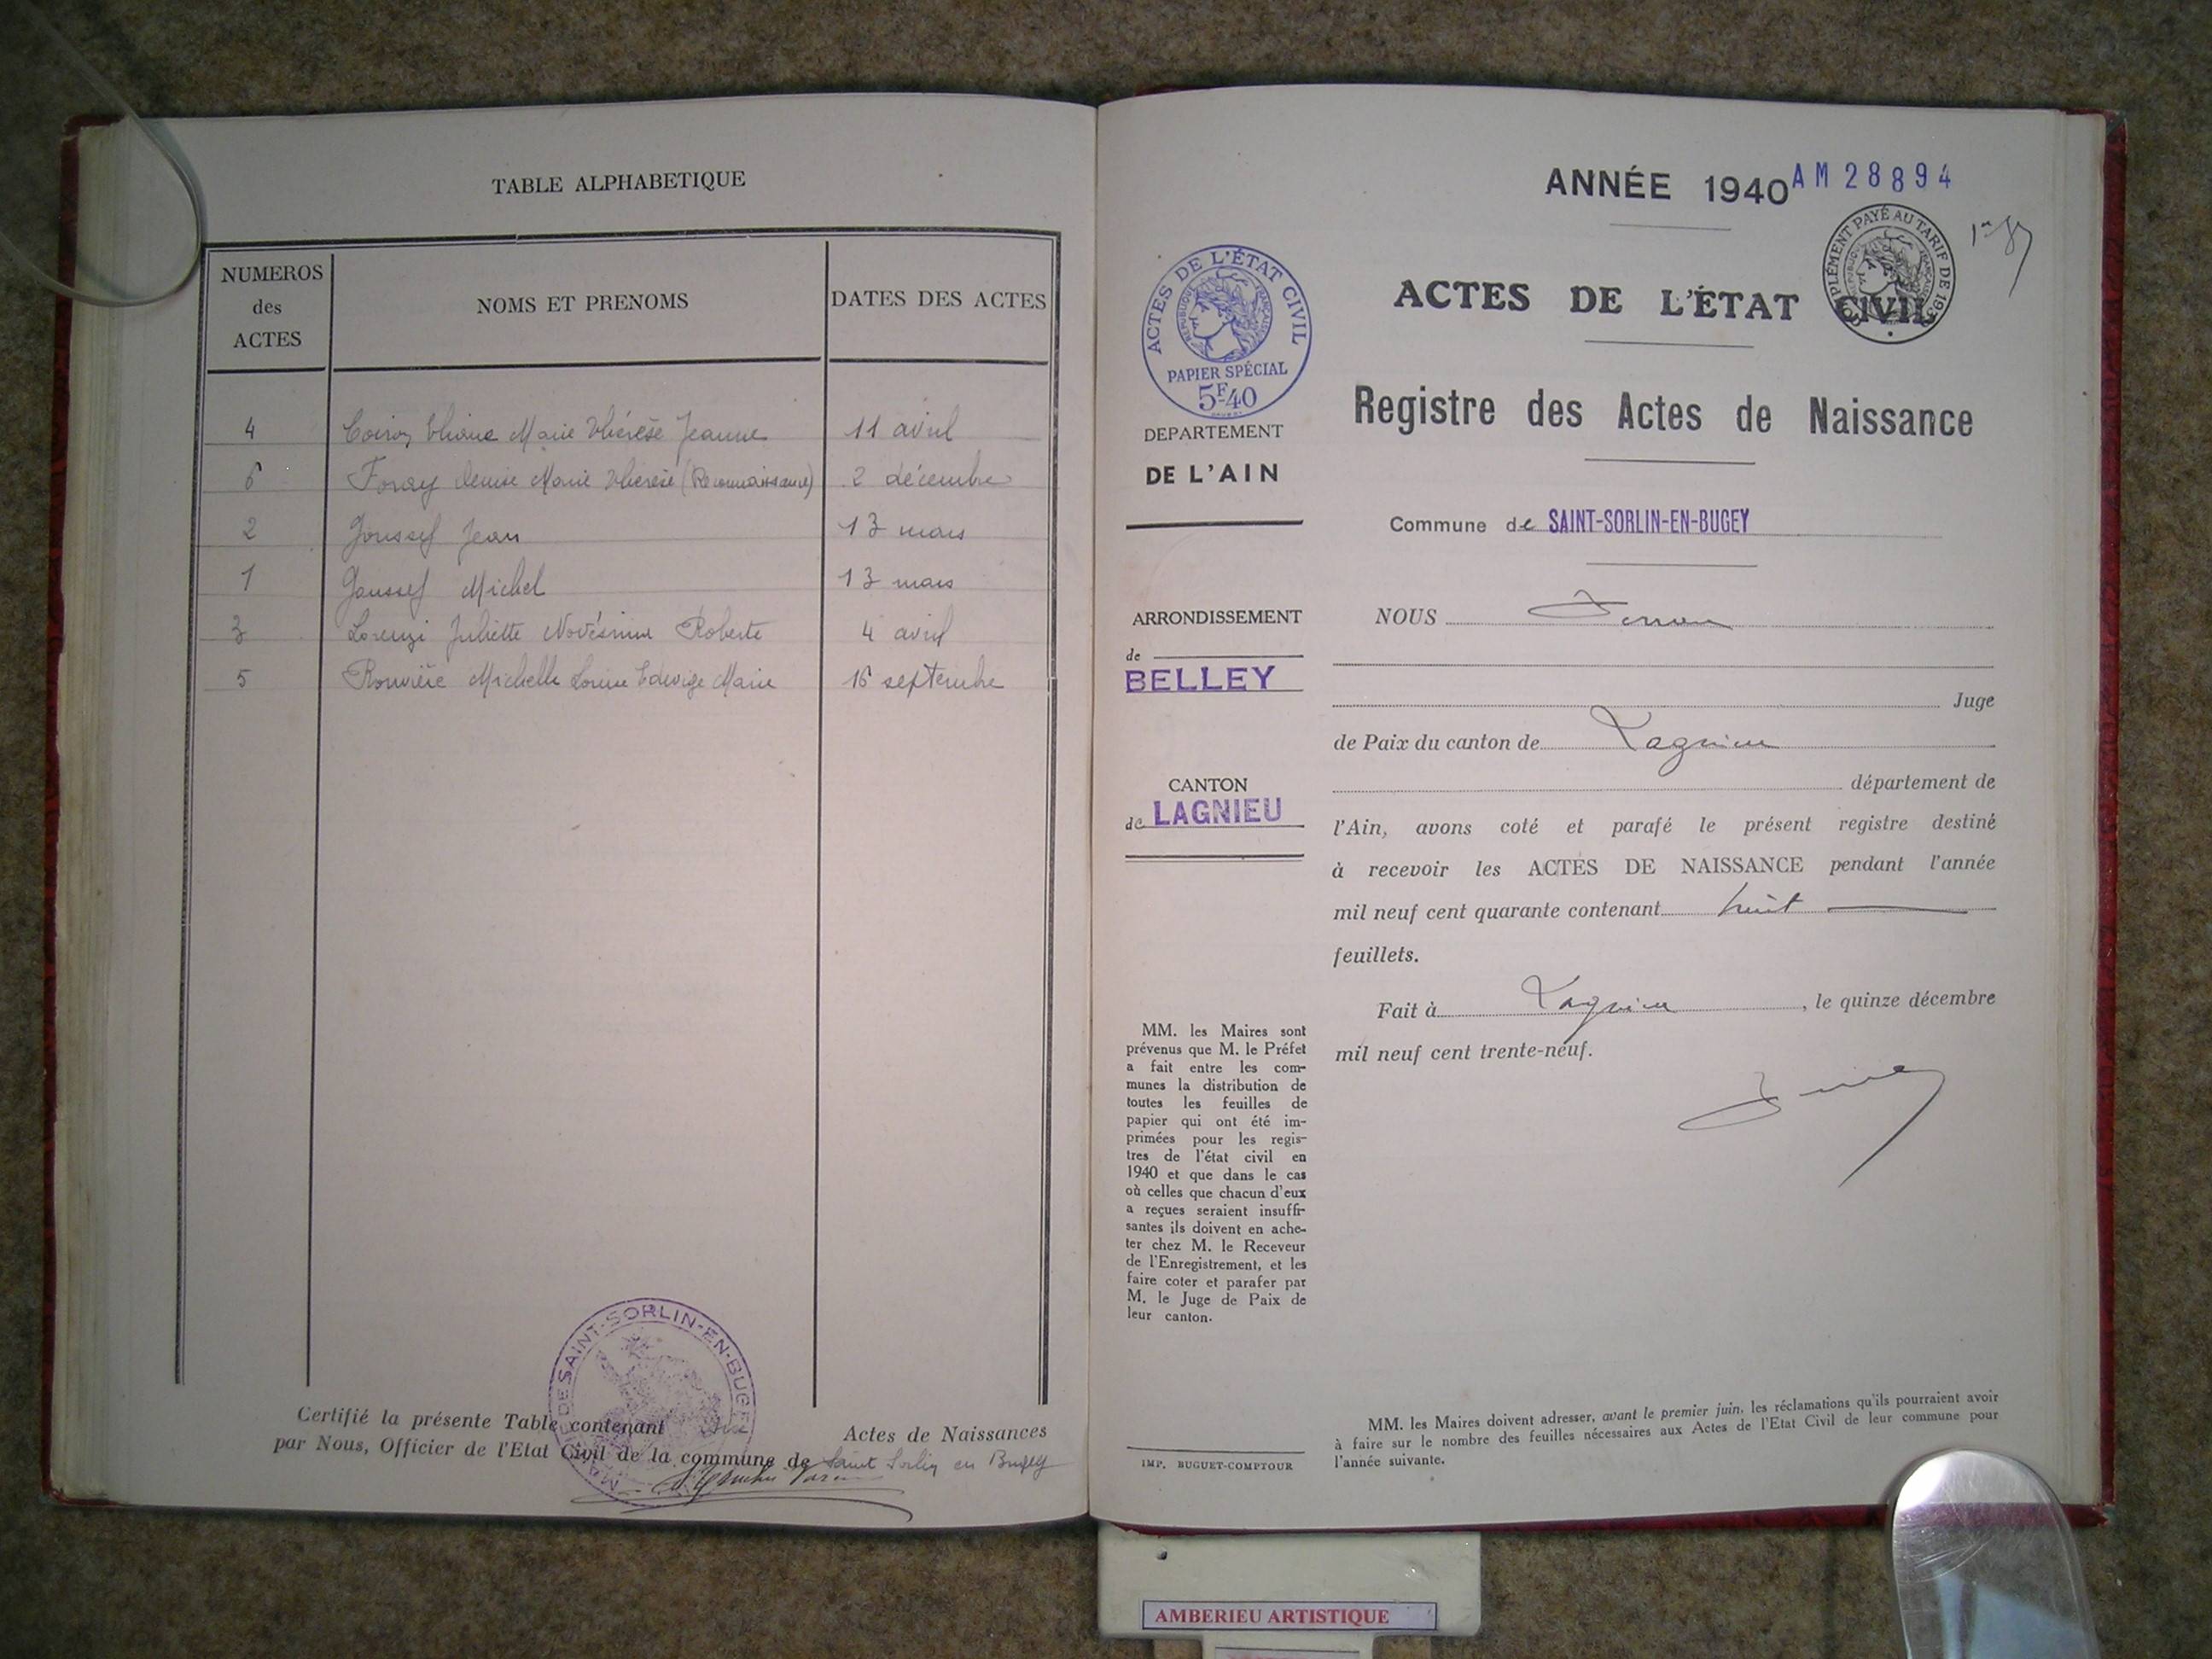 TABLE ALPHABETIQUE
NUMEROS
des
ACTES
NOMS ET PRENOMS
DATES DES ACTES
4 Marie Thérèse Jeanne 11 avril
6 Foray Denise Marie Thérèse (Reconnaissance) 2 décembre
2 Joussef Jean 13 mars
1 Joussef Michel 13 mars
3 Lorenzi Juliette Roberte 4 avril
5 Rouvière Michelle Louise Edwige Marie 16 septembre
MAIRIE DE SAINT-SORLIN-EN-BUGEY
Certifié la présente Table contenant six Actes de Naissances
par Nous, Officier de l'Etat Civil de la commune de Saint Sorlin en Bugey
ANNÉE 1940 AM 28894
COMPLÉMENT PAYÉ AU TARIF DE
RÉPUBLIQUE FRANÇAISE
ACTES DE L'ÉTAT CIVIL
RÉPUBLIQUE FRANÇAISE
PAPIER SPÉCIAL
5F40
ACTES DE L'ÉTAT CIVIL
Registre des Actes de Naissance
DEPARTEMENT
DE L'AIN
Commune de SAINT-SORLIN-EN-BUGEY
ARRONDISSEMENT
de
BELLEY
CANTON
de LAGNIEU
NOUS
Juge
de Paix du canton de Lagnieu
département de
l'Ain, avons coté et parafé le présent registre destiné
à recevoir les ACTES DE NAISSANCE pendant l'année
mil neuf cent quarante contenant huit
feuillets.
Fait à Lagnieu, le quinze décembre
mil neuf cent trente-neuf.
MM. les Maires sont
prévenus que M. le Préfet
a fait entre les com-
munes la distribution de
toutes les feuilles de
papier qui ont été im-
primées pour les regis-
tres de l'état civil en
1940 et que dans le cas
où celles que chacun d'eux
a reçues seraient insuffi-
santes ils doivent en ache-
ter chez M. le Receveur
de l'Enregistrement, et les
faire coter et parafer par
M. le Juge de Paix de
leur canton.
IMP. BUGUET-COMPTOUR
MM. les Maires doivent adresser, avant le premier juin, les réclamations qu'ils pourraient avoir
à faire sur le nombre des feuilles nécessaires aux Actes de l'Etat Civil de leur commune pour
l'année suivante.
AMBERIEU ARTISTIQUE